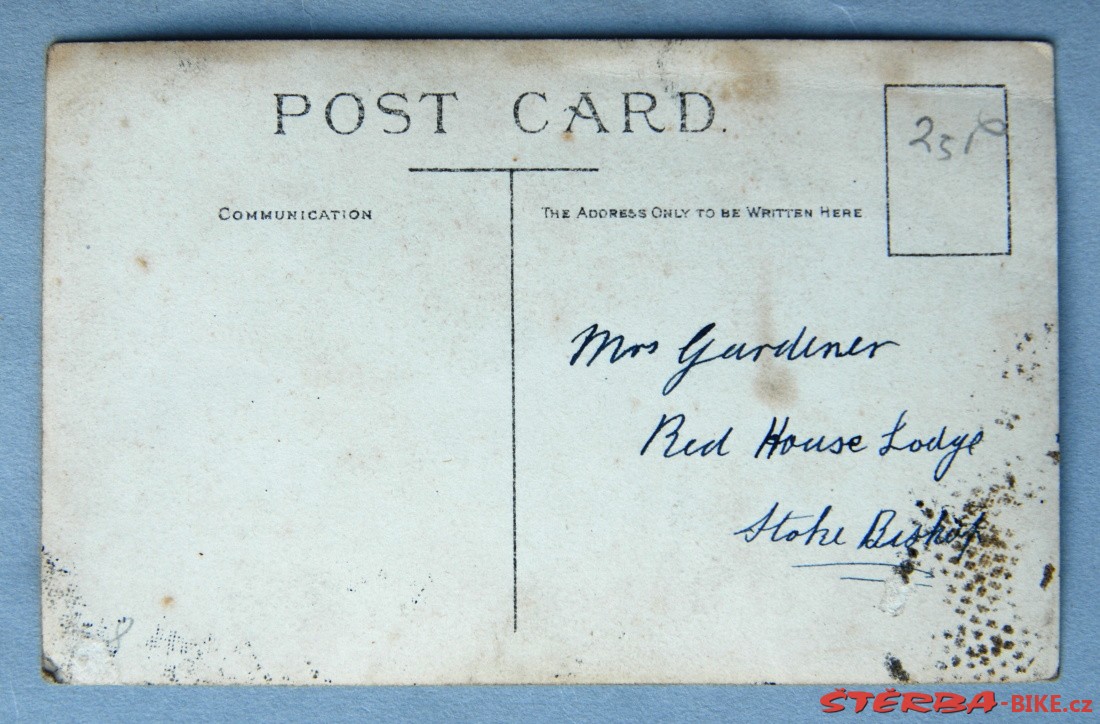 POST CARD.
COMMUNICATION
THE ADDRESS ONLY TO BE WRITTEN HERE
Mrs Gardener
Red House Lodge
Stoke Bishop
8
ŠTĚRBA-BIKE.cz